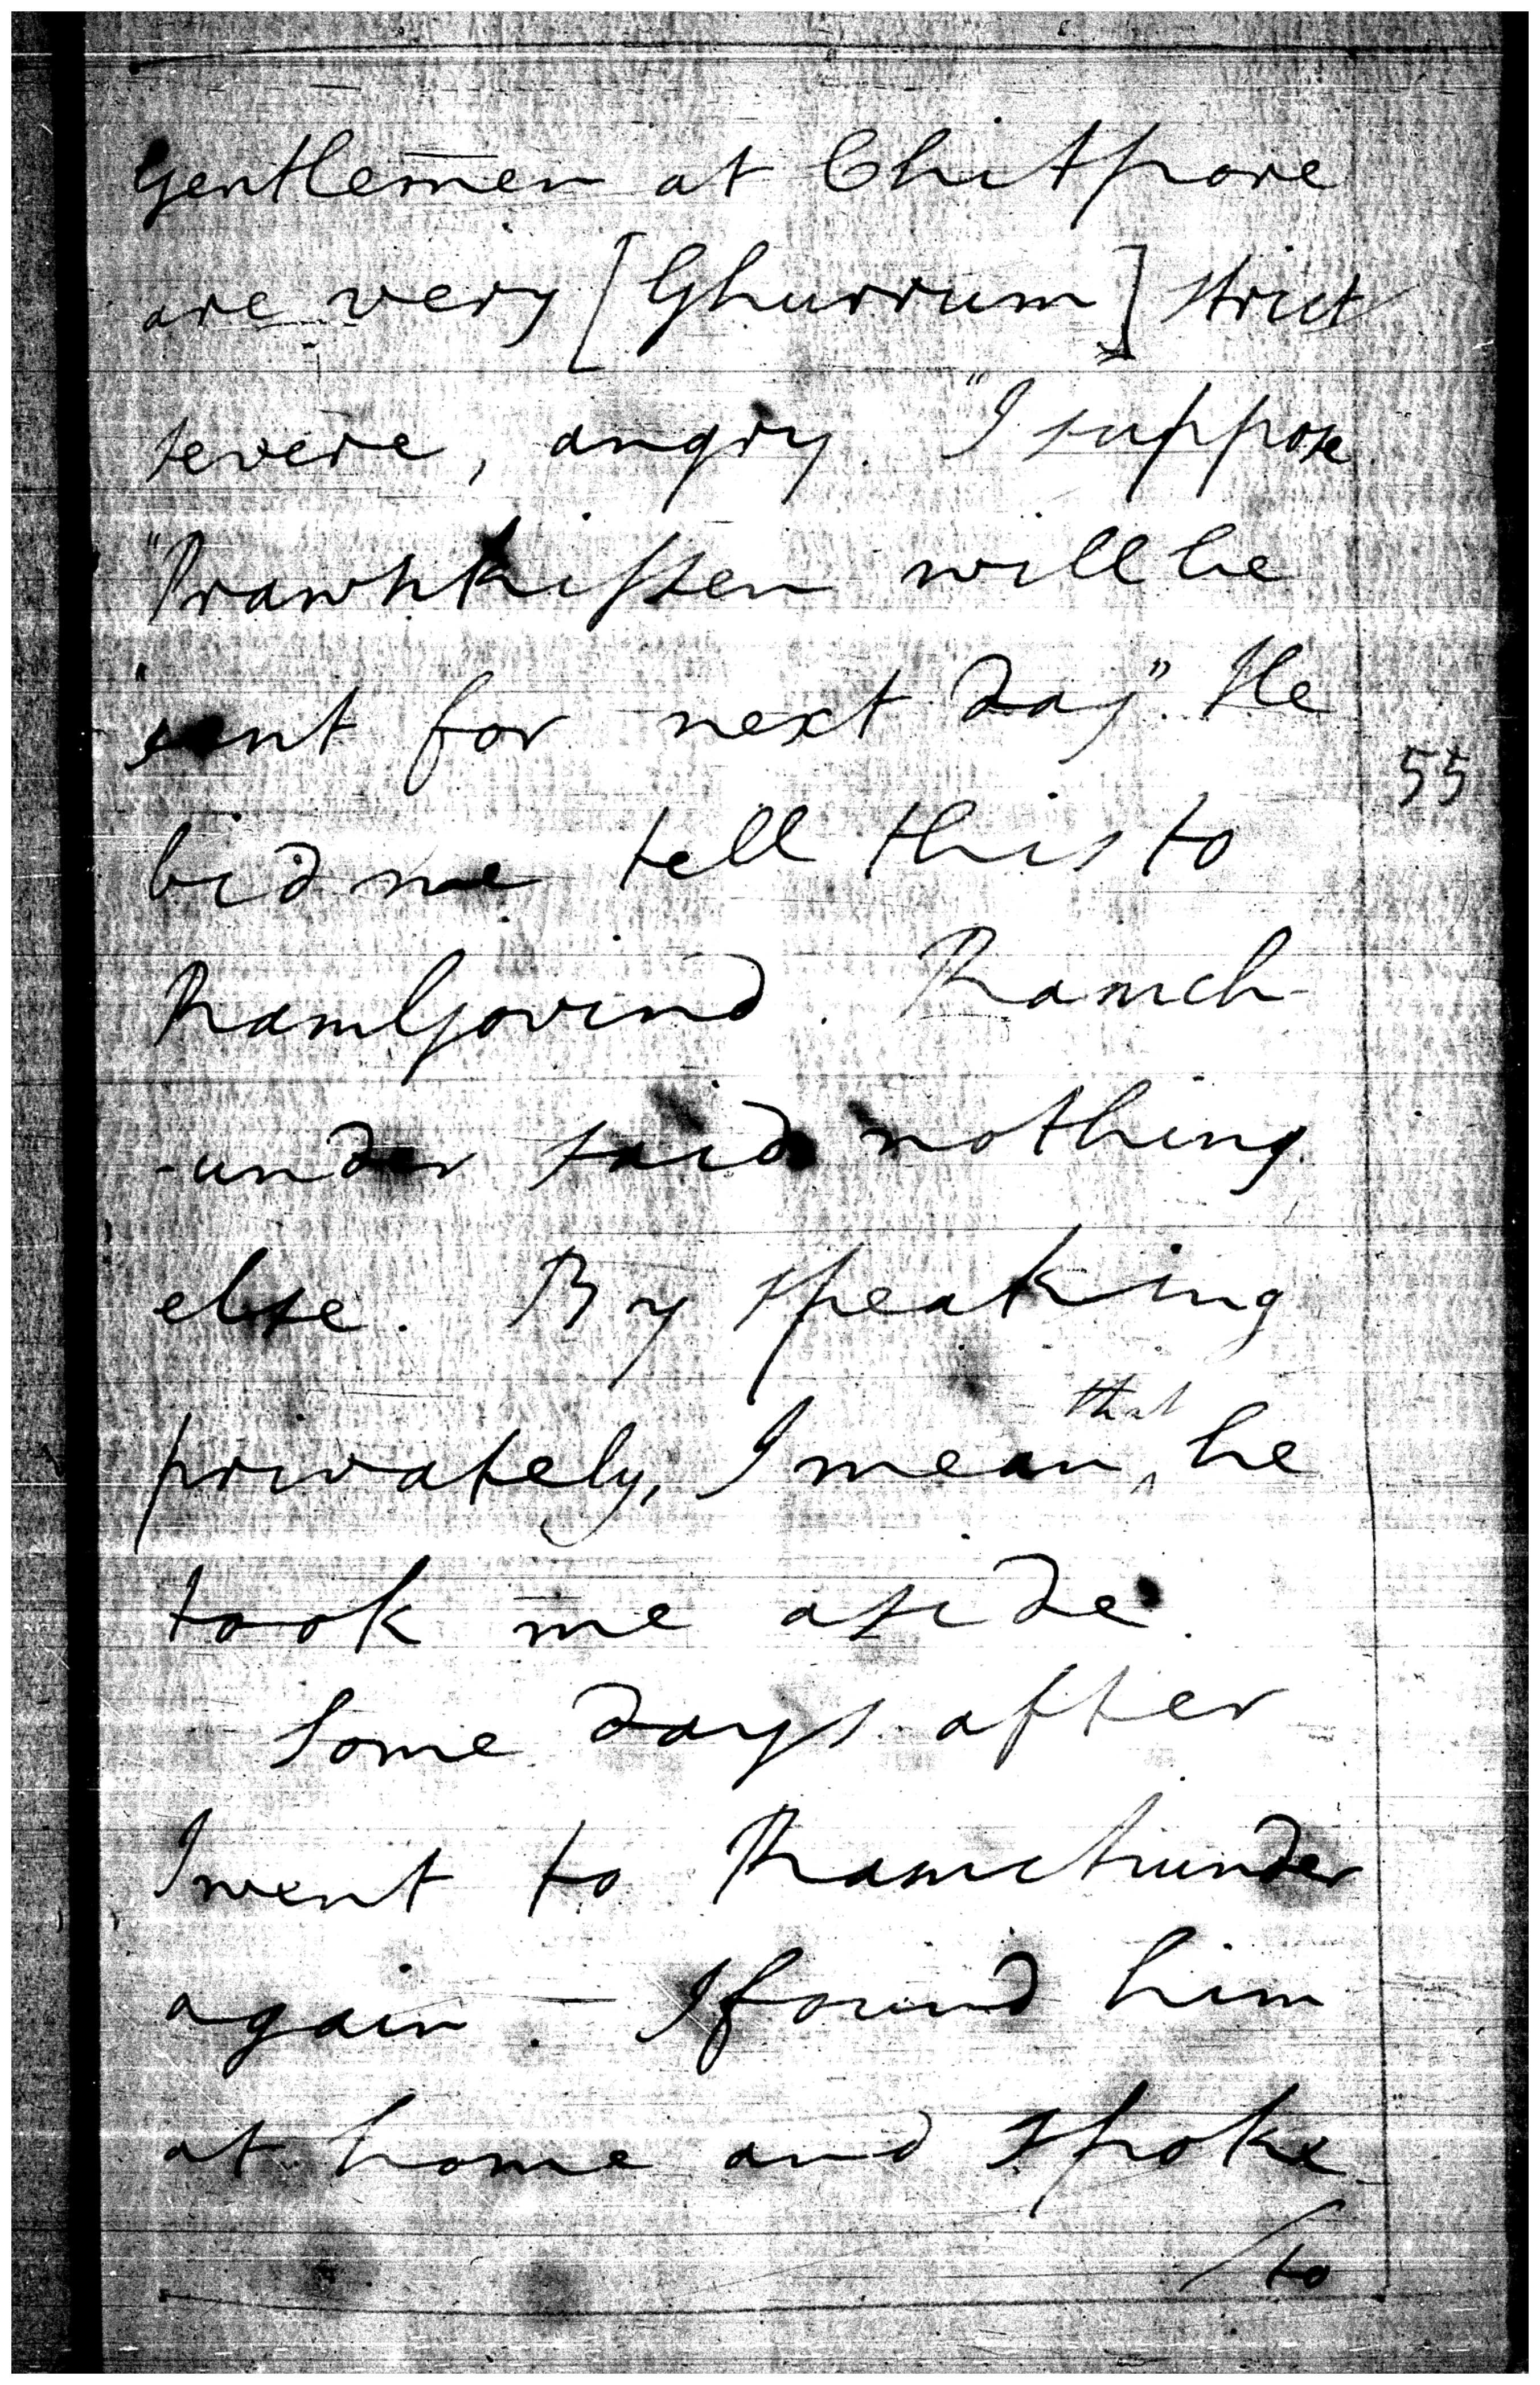 Gentlemen at Chitpore
are very [Ghurrum] strict
severe, angry. "I suppose
"Prawnkissen will be
"sent for next day". He
55
bid me tell this to
RamGovind. Ramch-
-under said nothing
else. By speaking
privately, I mean that he
took me aside.
Some days after
I went to Ramchunder
again - I found him
at home and spoke
/to